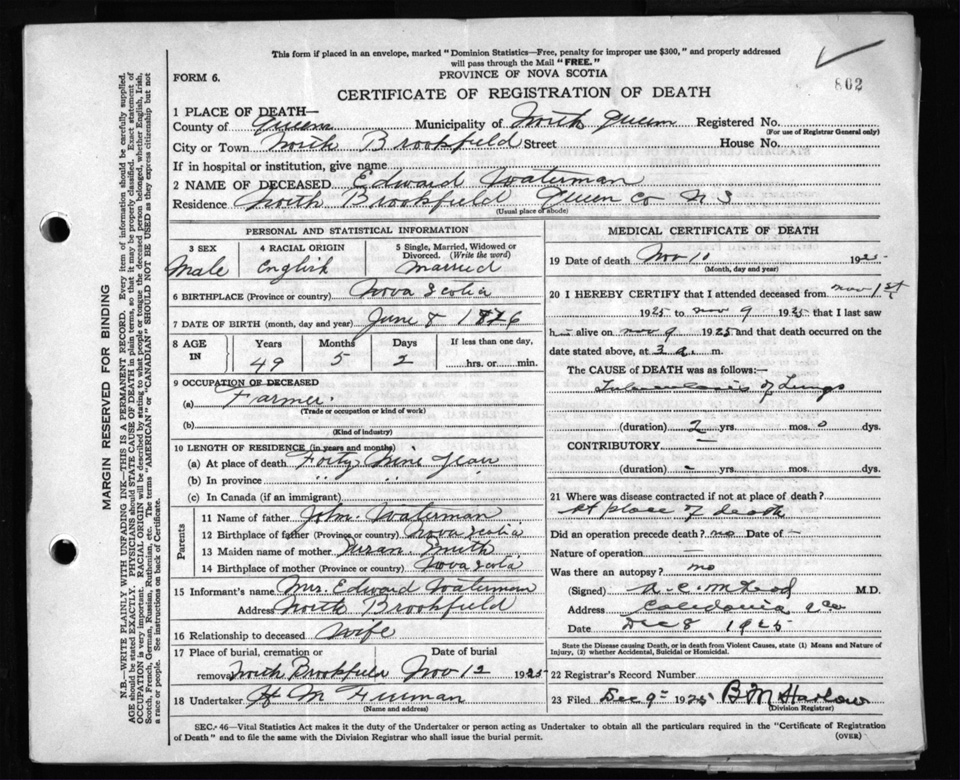 This form if placed in an envelope, marked "Dominion Statistics—Free, penalty for improper use $300," and properly addressed
will pass through the Mail "FREE."
802
FORM 6.
PROVINCE OF NOVA SCOTIA
CERTIFICATE OF REGISTRATION OF DEATH
1 PLACE OF DEATH—
County of Queens Municipality of North Queens Registered No.
(For use of Registrar General only)
City or Town North Brookfield Street House No.
If in hospital or institution, give name
2 NAME OF DECEASED Edward Waterman
Residence North Brookfield Queen Co N S
(Usual place of abode)
PERSONAL AND STATISTICAL INFORMATION
3 SEX 4 RACIAL ORIGIN 5 Single, Married, Widowed or
Divorced. (Write the word)
Male English Married
6 BIRTHPLACE (Province or country) Nova Scotia
7 DATE OF BIRTH (month, day and year) June 8 1876
8 AGE IN Years Months Days If less than one day,
49 5 2 hrs. or min.
9 OCCUPATION OF DECEASED
(a) Farmer.
(Trade or occupation or kind of work)
(b)
(Kind of industry)
10 LENGTH OF RESIDENCE (in years and months)
(a) At place of death Forty Nine Years
(b) In province " " "
(c) In Canada (if an immigrant)
Parents
11 Name of father John Waterman
12 Birthplace of father (Province or country) Nova Scotia
13 Maiden name of mother Susan Smith
14 Birthplace of mother (Province or country) Nova Scotia
15 Informant's name Mrs. Edward Waterman
Address North Brookfield
16 Relationship to deceased Wife
17 Place of burial, cremation or Date of burial
removal North Brookfield Nov 12 1925
18 Undertaker H M Freeman
(Name and address)
MEDICAL CERTIFICATE OF DEATH
19 Date of death Nov 10 1925
(Month, day and year)
20 I HEREBY CERTIFY that I attended deceased from Nov 1st
1925 to Nov 9 1925 that I last saw
h— alive on Nov 9 1925 and that death occurred on
date stated above, at 3 a. m.
The CAUSE OF DEATH was as follows:—
Tuberculosis of Lungs
(duration) 2 yrs. mos. 0 dys.
CONTRIBUTORY —
(duration) - yrs. mos. dys.
21 Where was disease contracted if not at place of death?
At place of death
Did an operation precede death? no Date of —
Nature of operation —
Was there an autopsy? no
(Signed) A. C. McLeod M.D.
Address Caledonia Q Co
Date Dec 8 1925
State the Disease causing Death, or in death from Violent Causes, state (1) Means and Nature of
Injury, (2) whether Accidental, Suicidal or Homicidal.
22 Registrar's Record Number
23 Filed Dec 9th 1925 B M Harlow
(Division Registrar)
SEC. 46—Vital Statistics Act makes it the duty of the Undertaker or person acting as Undertaker to obtain all the particulars required in the "Certificate of Registration
of Death" and to file the same with the Division Registrar who shall issue the burial permit.
(OVER)
MARGIN RESERVED FOR BINDING
N.B.—WRITE PLAINLY WITH UNFADING INK—THIS IS A PERMANENT RECORD. Every item of information should be carefully supplied.
AGE should be stated EXACTLY. PHYSICIANS should STATE CAUSE OF DEATH in plain terms, so that it may be properly classified. Exact statement of
OCCUPATION is very important. RACIAL ORIGIN will be described by stating to what people or tongue the deceased person belonged, whether English, Irish,
Scotch, French, German, Russian, Ruthenian, etc. The terms "AMERICAN" or "CANADIAN" SHOULD NOT BE USED as they express citizenship but not
a race or people. See instructions on back of Certificate.